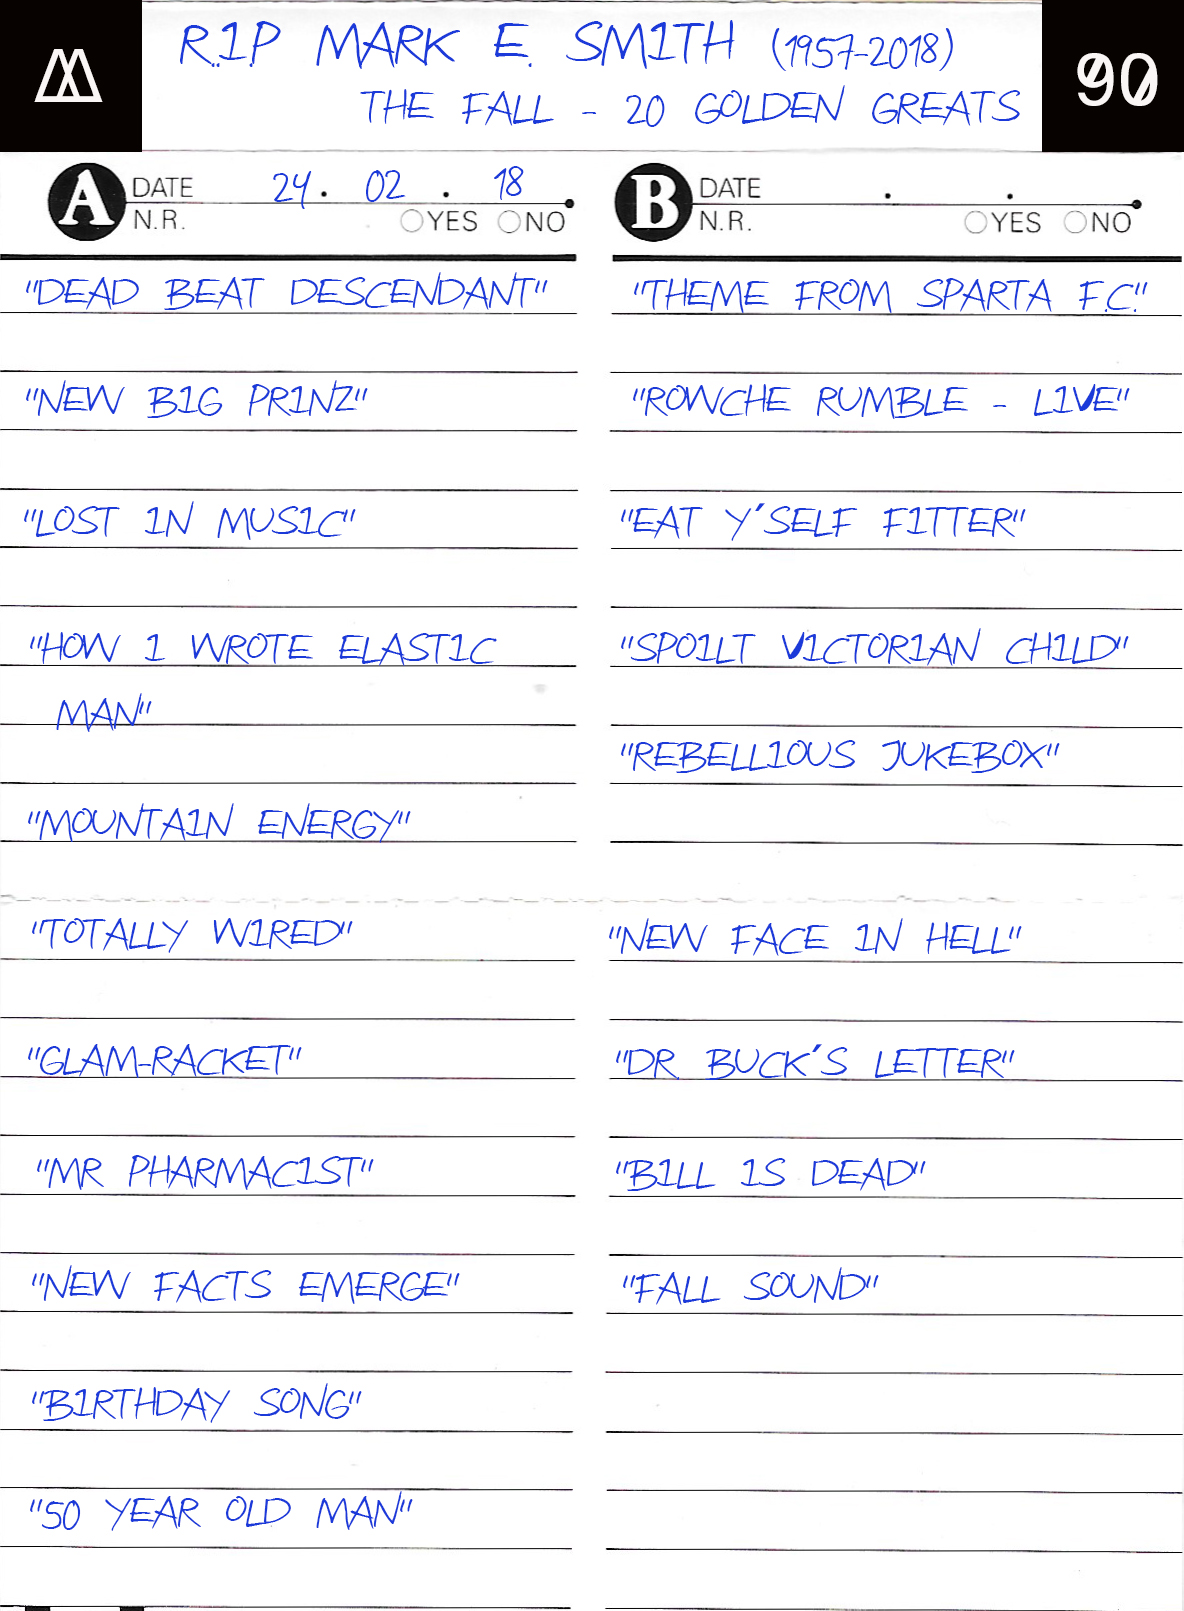 R.I.P MARK E. SMITH (1957-2018)
THE FALL - 20 GOLDEN GREATS
90
A DATE 24. 02. 18
N.R. YES NO
"DEAD BEAT DESCENDANT"
"NEW BIG PRINZ"
"LOST IN MUSIC"
"HOW I WROTE ELASTIC
MAN"
"MOUNTAIN ENERGY"
"TOTALLY WIRED"
"GLAM-RACKET"
"MR PHARMACIST"
"NEW FACTS EMERGE"
"BIRTHDAY SONG"
"50 YEAR OLD MAN"
B DATE . .
N.R. YES NO
"THEME FROM SPARTA F.C."
"ROWCHE RUMBLE - LIVE"
"EAT Y'SELF FITTER"
"SPOILT VICTORIAN CHILD"
"REBELLIOUS JUKEBOX"
"NEW FACE IN HELL"
"DR BUCK'S LETTER"
"BILL IS DEAD"
"FALL SOUND"